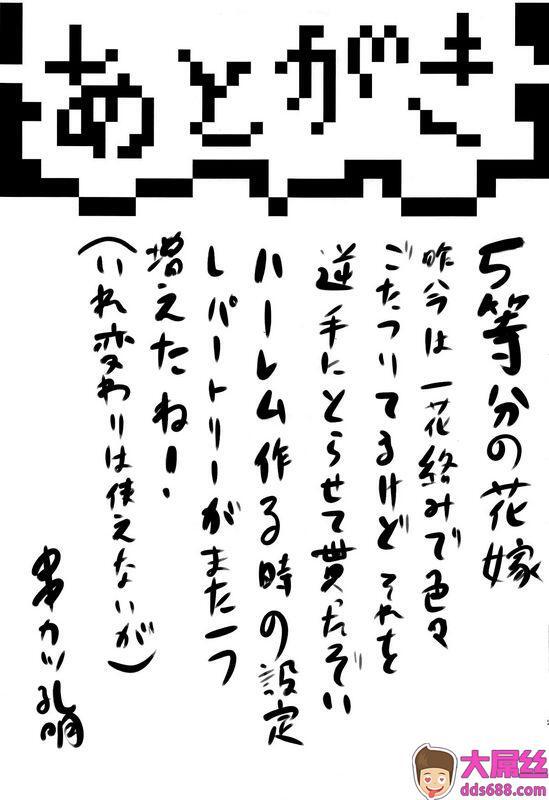 あとがき
5等分の花嫁
昨今は一花絡みで色々
ごたつりてるけど それを
逆手にとらせて貰ったぞい
ハーレム作る時の設定
レパートリーがまた一つ
増えたね!
(いれ変わりは使えないが)
串カツ孔明
大屌丝
dds688.com